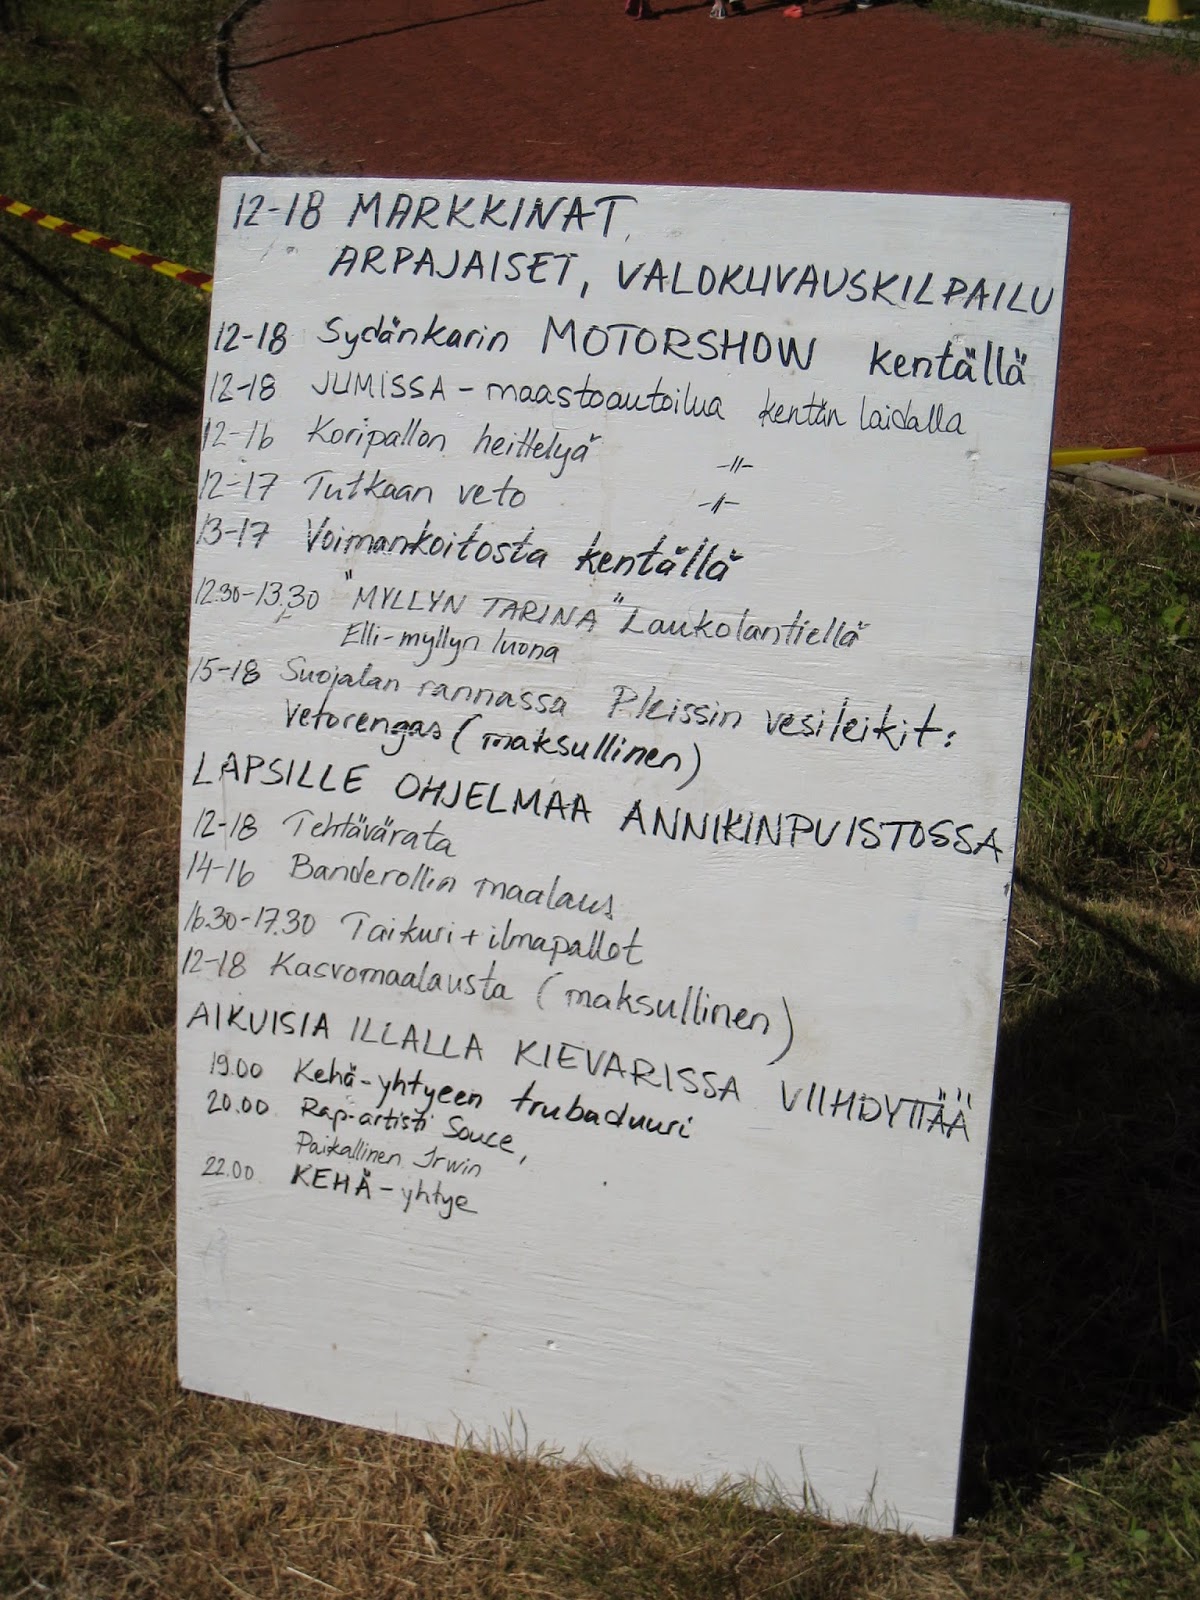 12-18 MARKKINAT,
ARPAJAISET, VALOKUVAUSKILPAILU
12-18 Sydänkarin MOTORSHOW kentällä
12-18 JUMISSA - maastoautoilua kentän laidalla
12-16 Koripallon heittelyä -11-
12-17 Tutkaan veto -11-
13-17 Voimankoitosta kentällä
12.30-13.30 "MYLLYN TARINA" Laukolantiellä
Elli-myllyn luona
15-18 Suojalan rannassa Pleissin vesileikit:
Vetorengas (maksullinen)
LAPSILLE OHJELMAA ANNIKINPUISTOSSA
12-18 Tehtävärata
14-16 Banderollin maalaus
16.30-17.30 Taikuri + ilmapallot
12-18 Kasvomaalausta (maksullinen)
AIKUISIA ILLALLA KIEVARISSA VIIHDYTTÄÄ
19.00 Kehä-yhtyeen trubaduuri
20.00 Rap-artisti Souce,
Paikallinen Irwin
22.00 KEHÄ-yhtye